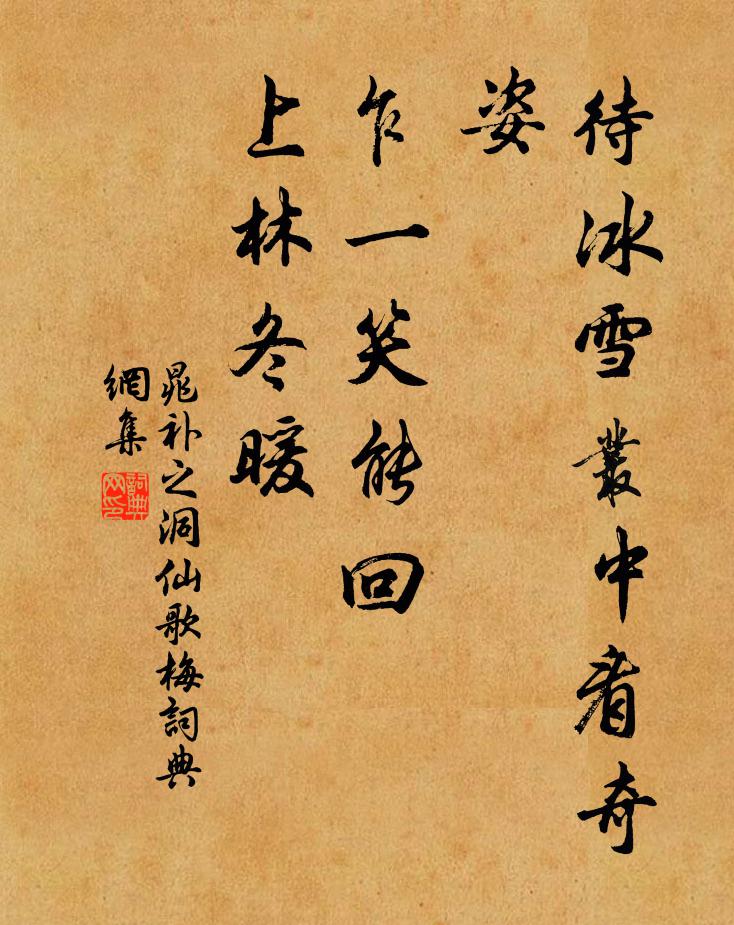 待冰雪叢中看奇
姿
乍一笑能回
上林冬暖
晁补之洞仙歌梅詞典
網集
詞典
网印